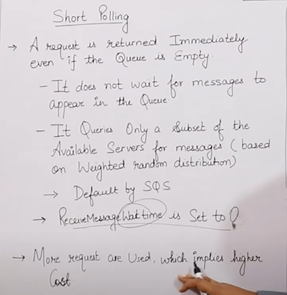 Short Polling
→ A request is returned Immediately
even if the Queue is Empty.
- It does not wait for messages to
appear in the Queue
- It Queries Only a Subset of the
Available Servers for messages (based
on Weighted random distribution)
→ Default by SQS
→ ReceiveMessageWaittime is Set to
→ More request are Used, which implies higher
Cost